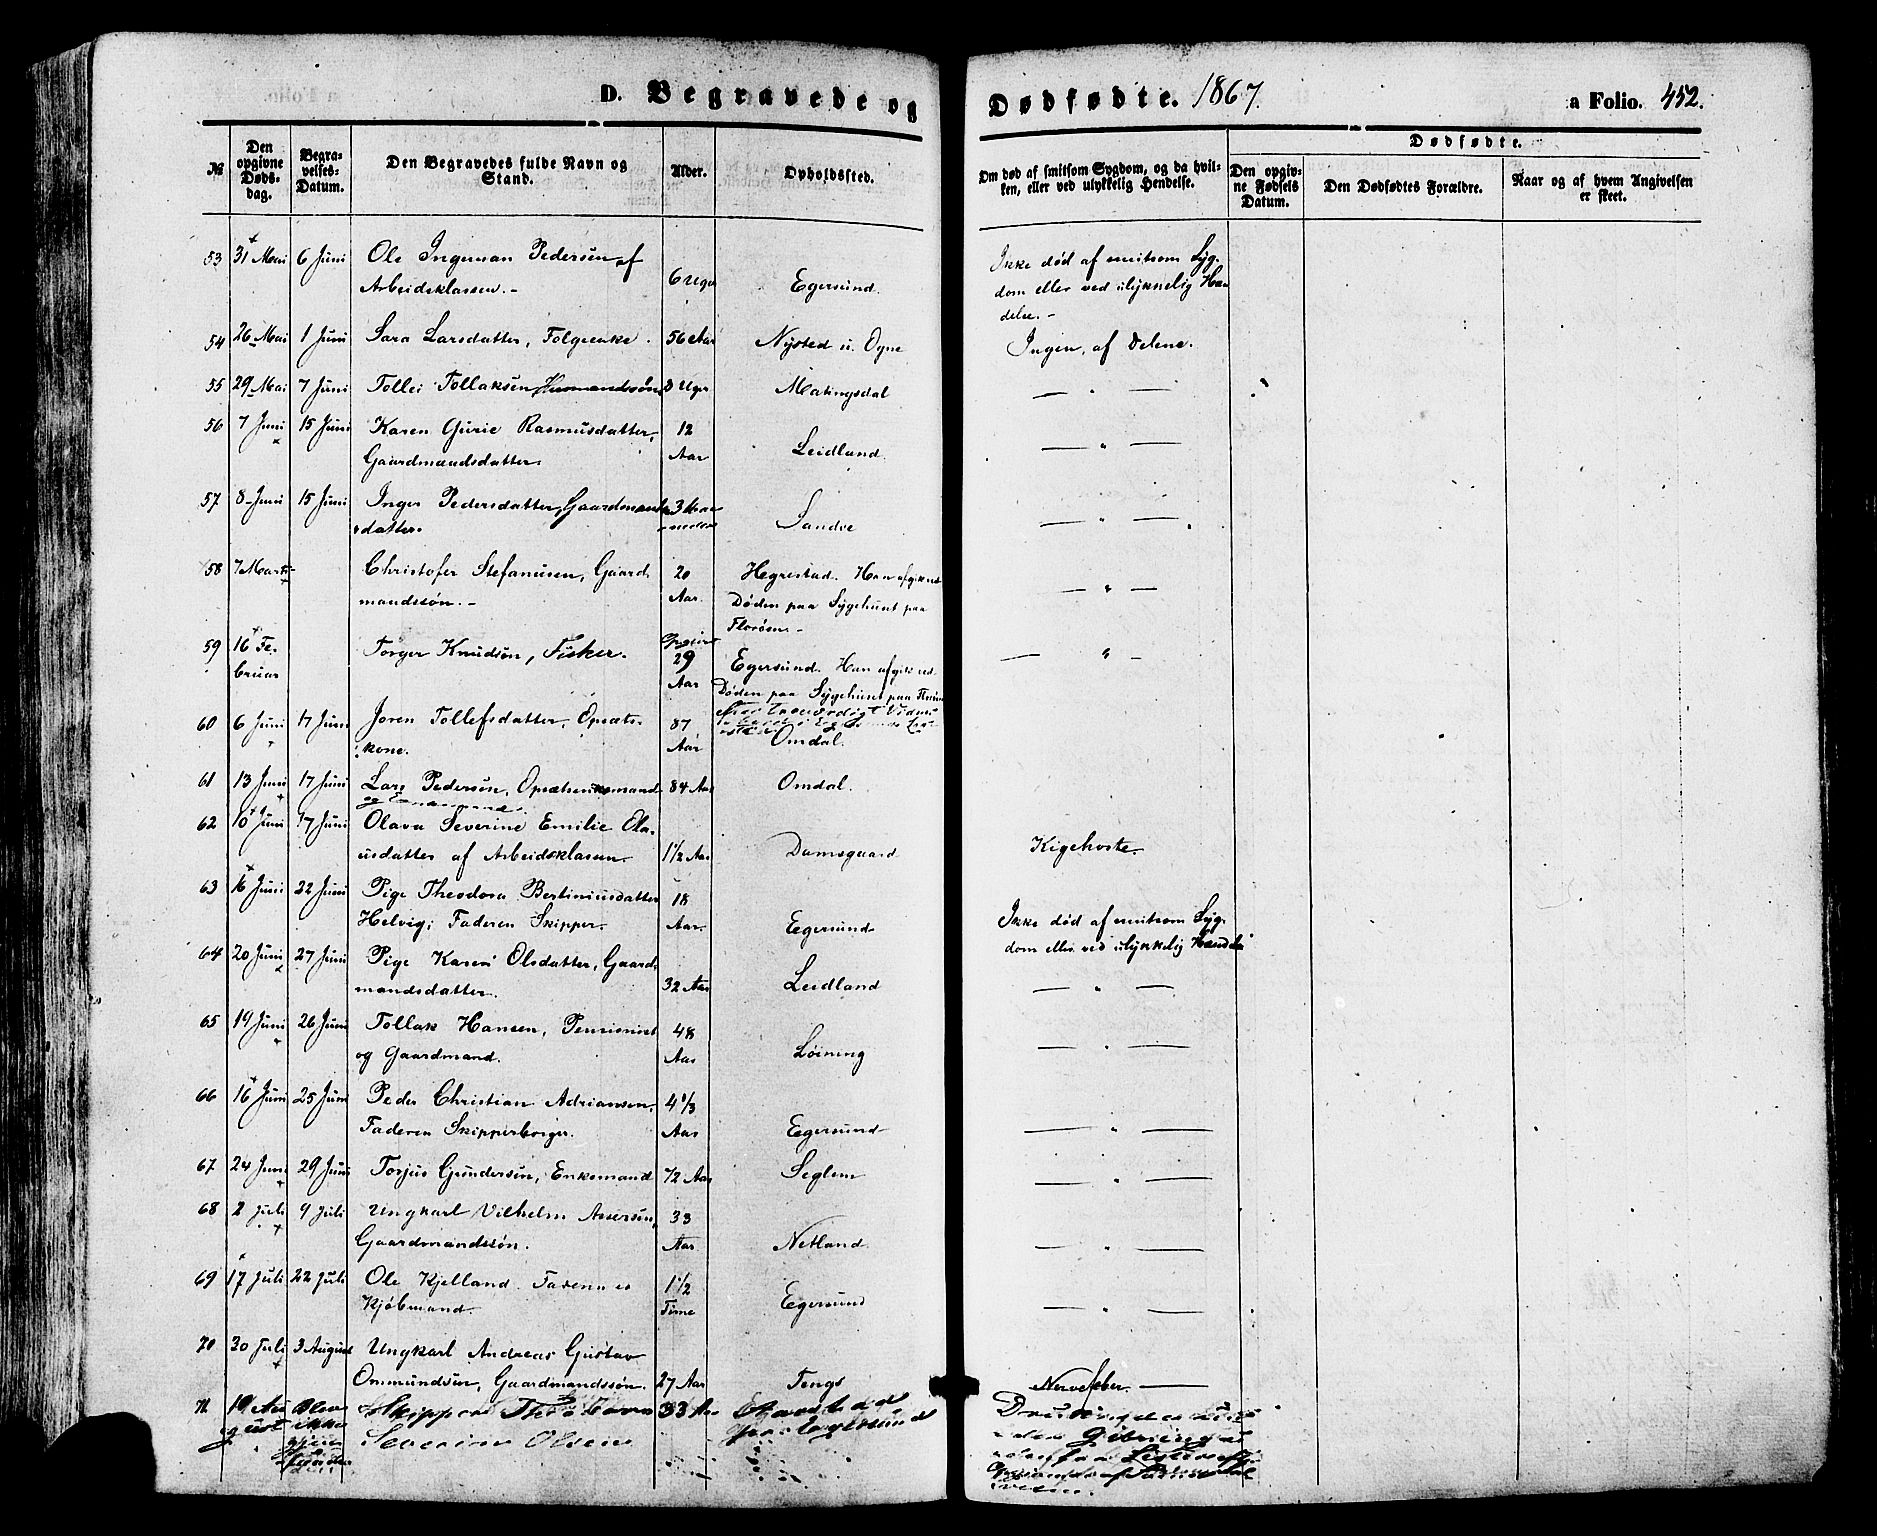 D. Begravede og Dødfødte. 1867. a Folio. 452.
№ Den opgivne Døds-dag. Begra-velses-Datum. Den Begravedes fulde Navn og Stand. Alder. Opholdssted. Om død af smitsom Sygdom, og da hvil-ken, eller ved ulykkelig Hendelse. Dødfødte. Den opgiv-ne Fødsels Datum. Den Dødfødtes Forældre. Naar og af hvem Angivelsen er skeet.
53 31 Mai 6 Juni Ole Ingeman Pedersen af
Arbeidsklassen.- 6 Uger Egersund. Ikke død af smitsom Syg-
dom eller ved ulykkelig Hæn
delse.-
54 26 Mai 1 Juni Sara Larsdatter, Folgeenke. 56 Aar Nysted u. Ogne Ingen af Delene.
55 29 Mai 7 Juni Tollei Tollaksen, Husmandssøn 3 Uger Matingsdal — " —
56 7 Juni 15 Juni Karen Gurie Rasmusdatter,
Gaardmandsdatter. 12 Aar Leidland. — " —
57 8 Juni 15 Juni Inger Pedersdatter, Gaardmands
datter. 3 Maaneder Sandve — " —
58 7 Marts - Christofer Stefanusen, Gaard
mandssøn.- 20 Aar. Hegrestad. Han afgik ved
Døden paa Sygehuset paa
Florøen.- — " —
59 16 Februar Torger Knudsøn, Fisker. Opgivet 29 Aar Egersund. Han afgik ved
Døden paa Sygehuset paa — " —
60 6 Juni 17 Juni Joren Tollefsdatter, Opsæts-
kone. 87 Aar Omdal.
61 13 Juni 17 Juni Lars Pedersen, Opsætsenkemand 84 Aar Omdal.
62 10 Juni 17 Juni Olava Severine Emilie Ola-
usdatter af Arbeidsklassen. 1 1/2 Aar Damsgaard Kigehoste.
63 16 Juni 22 Juni Pige Theodora Bertiniusdatter
Helvig; Faderen Skipper. 18 Aar. Egersund Ikke død af smitsom Syg-
dom eller ved ulykkelig Hændel
64 20 Juni 27 Juni Pige Karen Olsdatter, Gaard
mandsdatter. 32 Aar Leidland — " —
65 19 Juni 26 Juni Tollak Hansen, Pensionist
og Gaardmand. 48 Aar Løining — " —
66 16 Juni 25 Juni Peder Christian Adriansen,
Faderen Skipperborger. 4 1/3 Aar Egersund — " —
67 24 Juni 29 Juni Torjus Gundersen, Enkemand 72 Aar Seglem — " —
68 2 Juli 9 Juli Ungkarl Vilhelm Assersen,
Gaardmandssøn. 33 Aar. Netland. — " —
69 17 Juli 22 Juli Ole Kjelland. Faderen er
Kjøbmand. 1 1/2 Time Egersund — " —
70 30 Juli 3 August Ungkarl Andreas Gustav
Ommundsen, Gaardmandssøn. 27 Aar Tengs Nervefeber. —
71 19 August Blev ikke Skipper
Severin Olsen 33 Aar